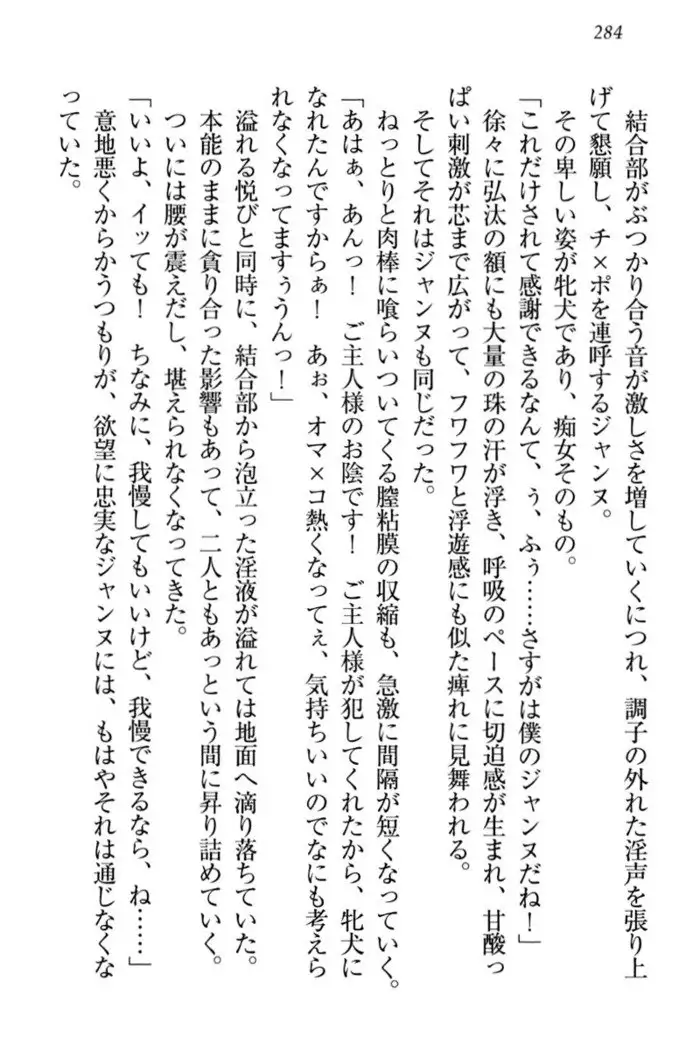 284
結合部がぶつかり合う音が激しさを増していくにつれ、調子の外れた淫声を張り上
げて懇願し、チ×ポを連呼するジャンヌ。
その卑しい姿が牝犬であり、痴女そのもの。
「これだけされて感謝できるなんて、ぅ、ふぅ……さすがは僕のジャンヌだね!」
徐々に弘汰の額にも大量の珠の汗が浮き、呼吸のペースに切迫感が生まれ、甘酸っ
ぱい刺激が芯まで広がって、フワフワと浮遊感にも似た痺れに見舞われる。
そしてそれはジャンヌも同じだった。
ねっとりと肉棒に喰らいついてくる膣粘膜の収縮も、急激に間隔が短くなっていく。
「あはぁ、あんっ! ご主人様のお陰です! ご主人様が犯してくれたから、牝犬に
なれたんですからぁ! あぉ、オマ×コ熱くなってぇ、気持ちいいのでなにも考えら
れなくなってますぅうんっ!」
溢れる悦びと同時に、結合部から泡立った淫液が溢れては地面へ滴り落ちていた。
本能のままに貪り合った影響もあって、二人ともあっという間に昇り詰めていく。
ついには腰が震えだし、堪えられなくなってきた。
「いいよ、イッても! ちなみに、我慢してもいいけど、我慢できるなら、ね……」
意地悪くからかうつもりが、欲望に忠実なジャンヌには、もはやそれは通じなくな
っていた。